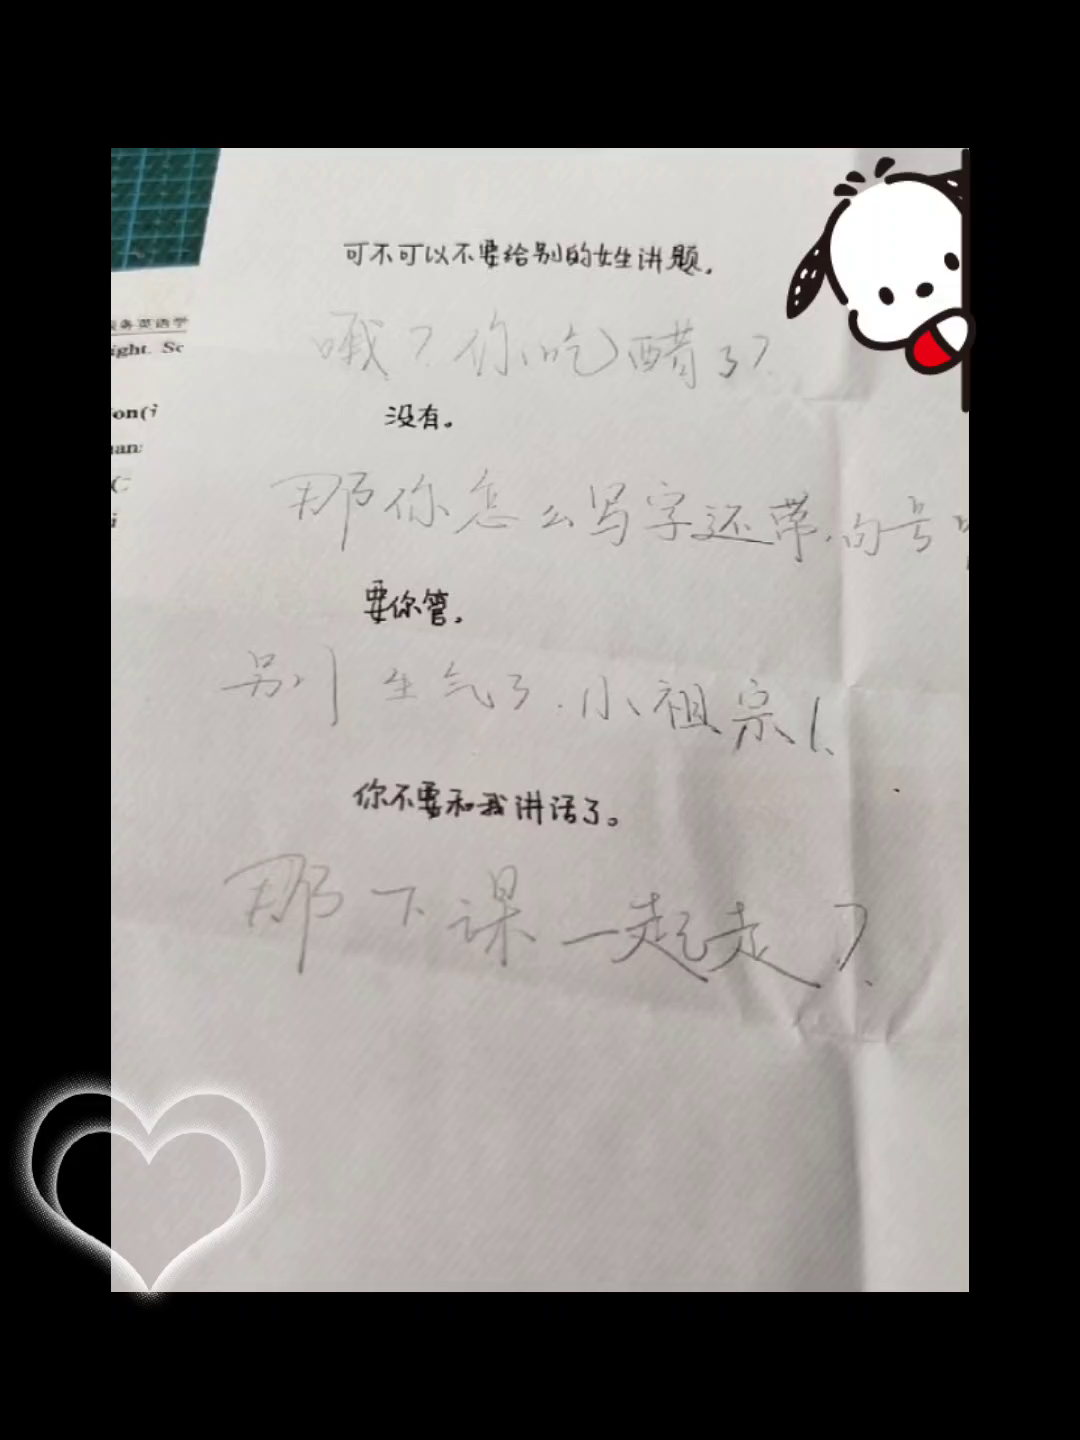 可不可以不要给别的女生讲题.
哦?你吃醋了?
没有。
那你怎么写字还带句号
要你管.
别生气了.小祖宗!
你不要和我讲话了。
那下课一起走?
务英语学
ight. Sc
on(i